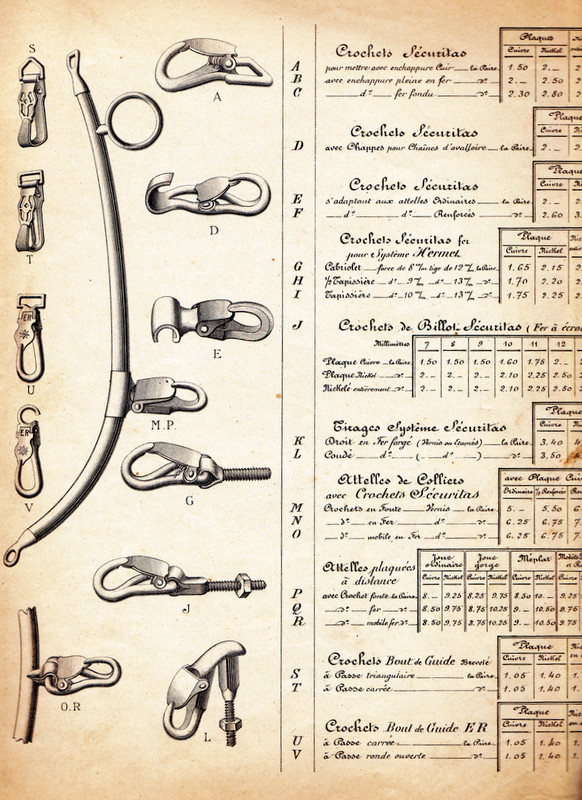 S
T
U
V
A
D
E
M.P.
G
J
O.R
L
Crochets Sécuritas
Plaques
Cuivre Nickel
A pour mettre avec enchappure Cuir la Paire 1.50 2._
B avec enchappure pleine en fer d° 2._ 2.50
C d° fer fondu d° 2.30 2.80
Crochets Sécuritas
Cuivre
D avec Chappes pour Chaînes d'avaloire la Paire 2._
Crochets Sécuritas
Cuivre
E s'adaptant aux attelles Ordinaires la Paire 2._
F d° d° Renforcés d° 2.60
Crochets Sécuritas fer
pour Système Hermet
Plaque
Cuivre Nickel
G Cabriolet force de 8 m/m tige de 12 m/m la Paire 1.65 2.15
H ½ Tapissière d° 9 m/m d° 13 m/m d° 1.70 2.20
I Tapissière d° 10 m/m d° 13 m/m d° 1.75 2.25
J Crochets de Billot Sécuritas (Fer à écrou
Millimètres 7 8 9 10 11 12
Plaque Cuivre la Paire 1.50 1.50 1.50 1.60 1.75 2._
Plaque Nickel d° 2._ 2._ 2._ 2.10 2.25 2.50
Nickelé entièrement d° 2._ 2._ 2._ 2.10 2.25 2.50
Tirages Système Sécuritas
Cuivre
K Droit en Fer forgé (Vernis ou Étamés) la Paire 3.40
L Coudé d° ( d° ) d° 3.50
Attelles de Colliers
avec Crochets Sécuritas
avec Plaque
Ordinaire ½ Renforcée
M Crochets en Fonte Vernis la Paire 5._ 5.50
N d° en Fer d° d° 6.25 6.75
O d° mobile en Fer d° d° 6.25 6.75
Attelles plaquées
à distance
Joue ordinaire Joue gorge Méplat
Cuivre Nickel Cuivre Nickel Cuivre Nickel Cuivre
P avec Crochet fonte la Paire 8._ 9.25 8.25 9.75 8.50 10._ 9.25
Q d° fer d° 8.50 9.75 8.75 10.25 9._ 10.50 9.75
R d° mobile fer d° 8.50 9.75 8.75 10.25 9._ 10.50 9.75
Crochets Bout de Guide Breveté
Plaque
Cuivre Nickel
S à Passe triangulaire la Paire 1.05 1.40
T à Passe carrée d° 1.05 1.40
Crochets Bout de Guide ER
Plaque
Cuivre Nickel
U à Passe carrée la Paire 1.05 1.40
V à Passe ronde ouverte d° 1.05 1.40